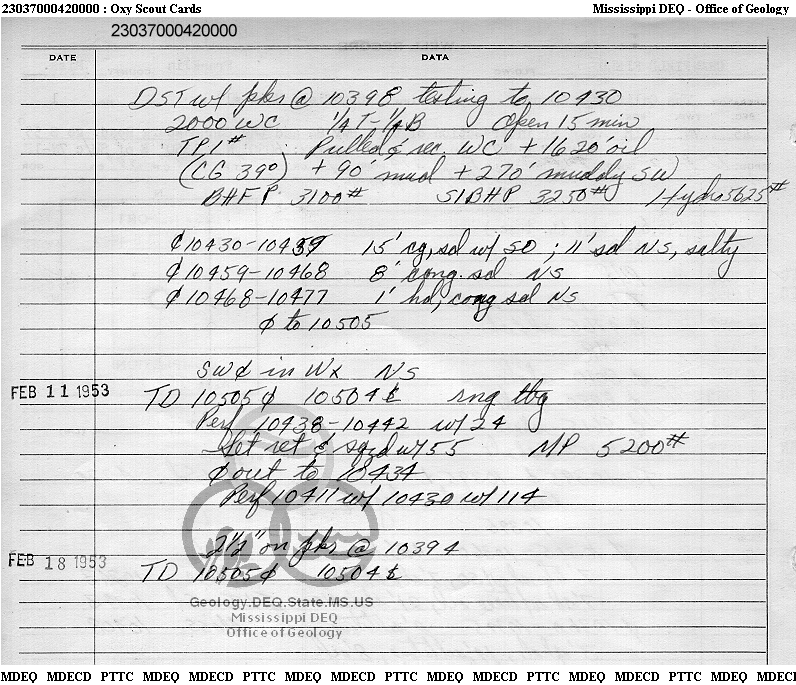 23037000420000 : Oxy Scout Cards Mississippi DEQ - Office of Geology
23037000420000
DATE DATA
DST w/ pkr @ 10398 testing to 10430
2000 WC 1/4 T - 1/4 B Open 15 min
TP 1# Pulled & rec WC + 1620' oil
(CG 39°) + 90' mud + 270' muddy SW
BHFP 3100# SIBHP 3250# Hydro 5625#
¢ 10430-10459 15' cg, sd w/ SO ; 11' sd NS, salty
¢ 10459-10468 8' cong. sd NS
¢ 10468-10477 1' hd, cong sd NS
¢ to 10505
SW¢ in Wx NS
FEB 11 1953 TD 10505 ¢ 10504 rng tbg
Perf 10438-10442 w/ 24
Set ret & sqzd w/ 55 MP 5200#
¢ out to 10434
Perf 10411 w/ 10430 w/ 114
2 1/2" on pkr @ 10394
FEB 18 1953 TD 10505 ¢ 10504
Geology.DEQ.State.MS.US
Mississippi DEQ
Office of Geology
MDEQ MDECD PTTC MDEQ MDECD PTTC MDEQ MDECD PTTC MDEQ MDECD PTTC MDEQ MDECD PTTC MDEQ MDECD